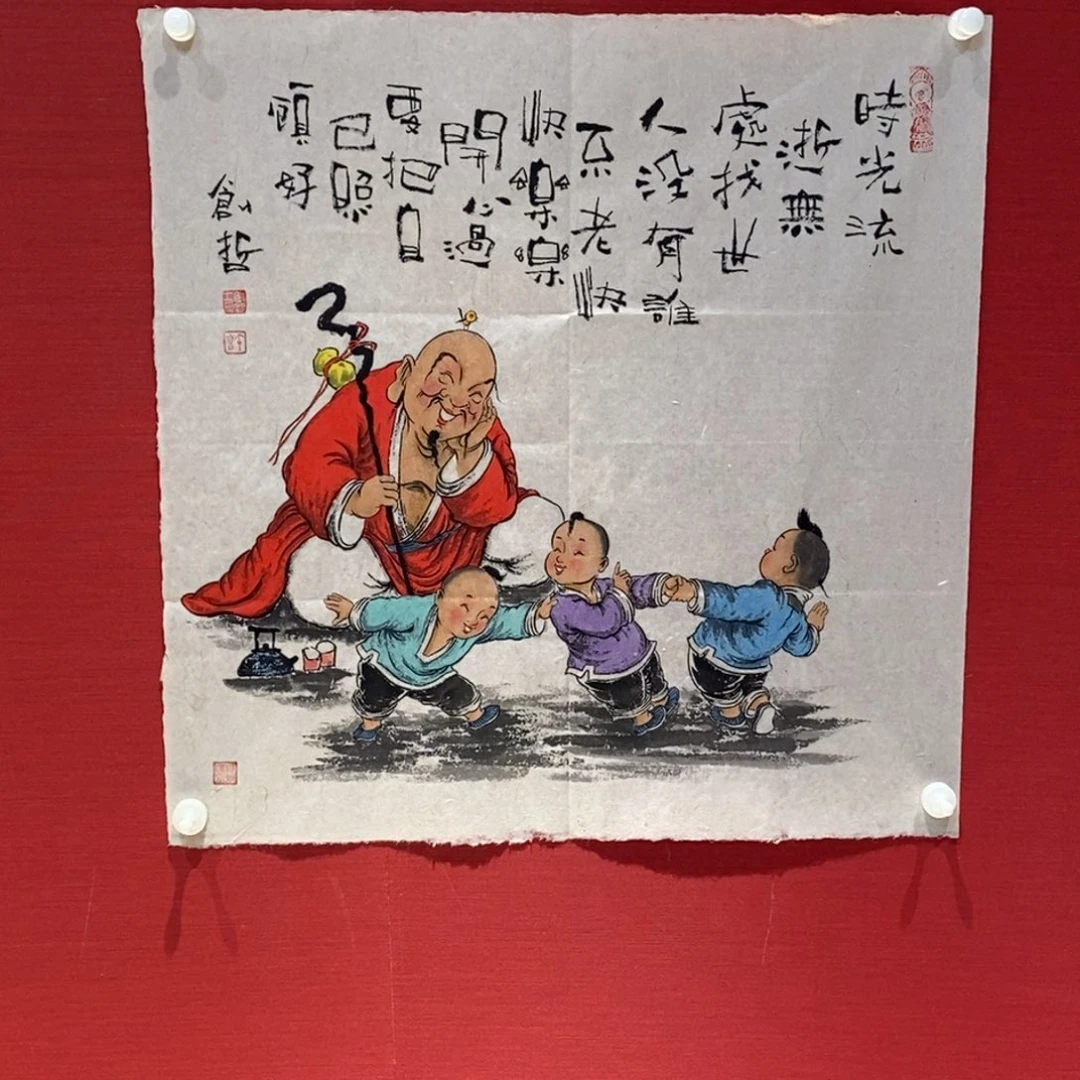 時光流
逝無
處找世
人没有誰
不老快
快樂樂
開心過
要把自
己照
顧好
創哲